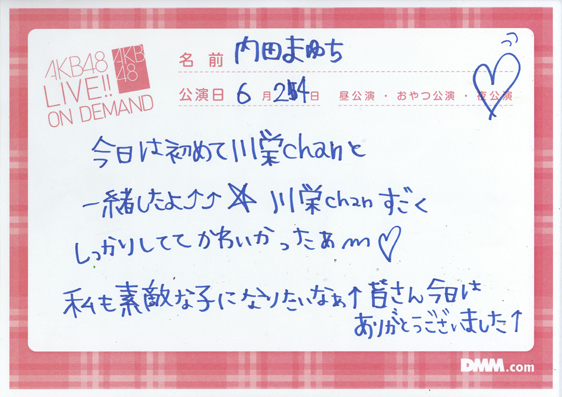 AKB48
LIVE!!
ON DEMAND
AKB
48
名前 内田まゆち
公演日 6月24日 昼公演・おやつ公演・夜公演
今日は初めて川栄chanと
一緒したよ↑↑☆ 川栄chanすごく
しっかりしててかわいかったぁm♡
私も素敵な子になりたいなぁ↑皆さん今日は
ありがとうございました↑
DMM.com